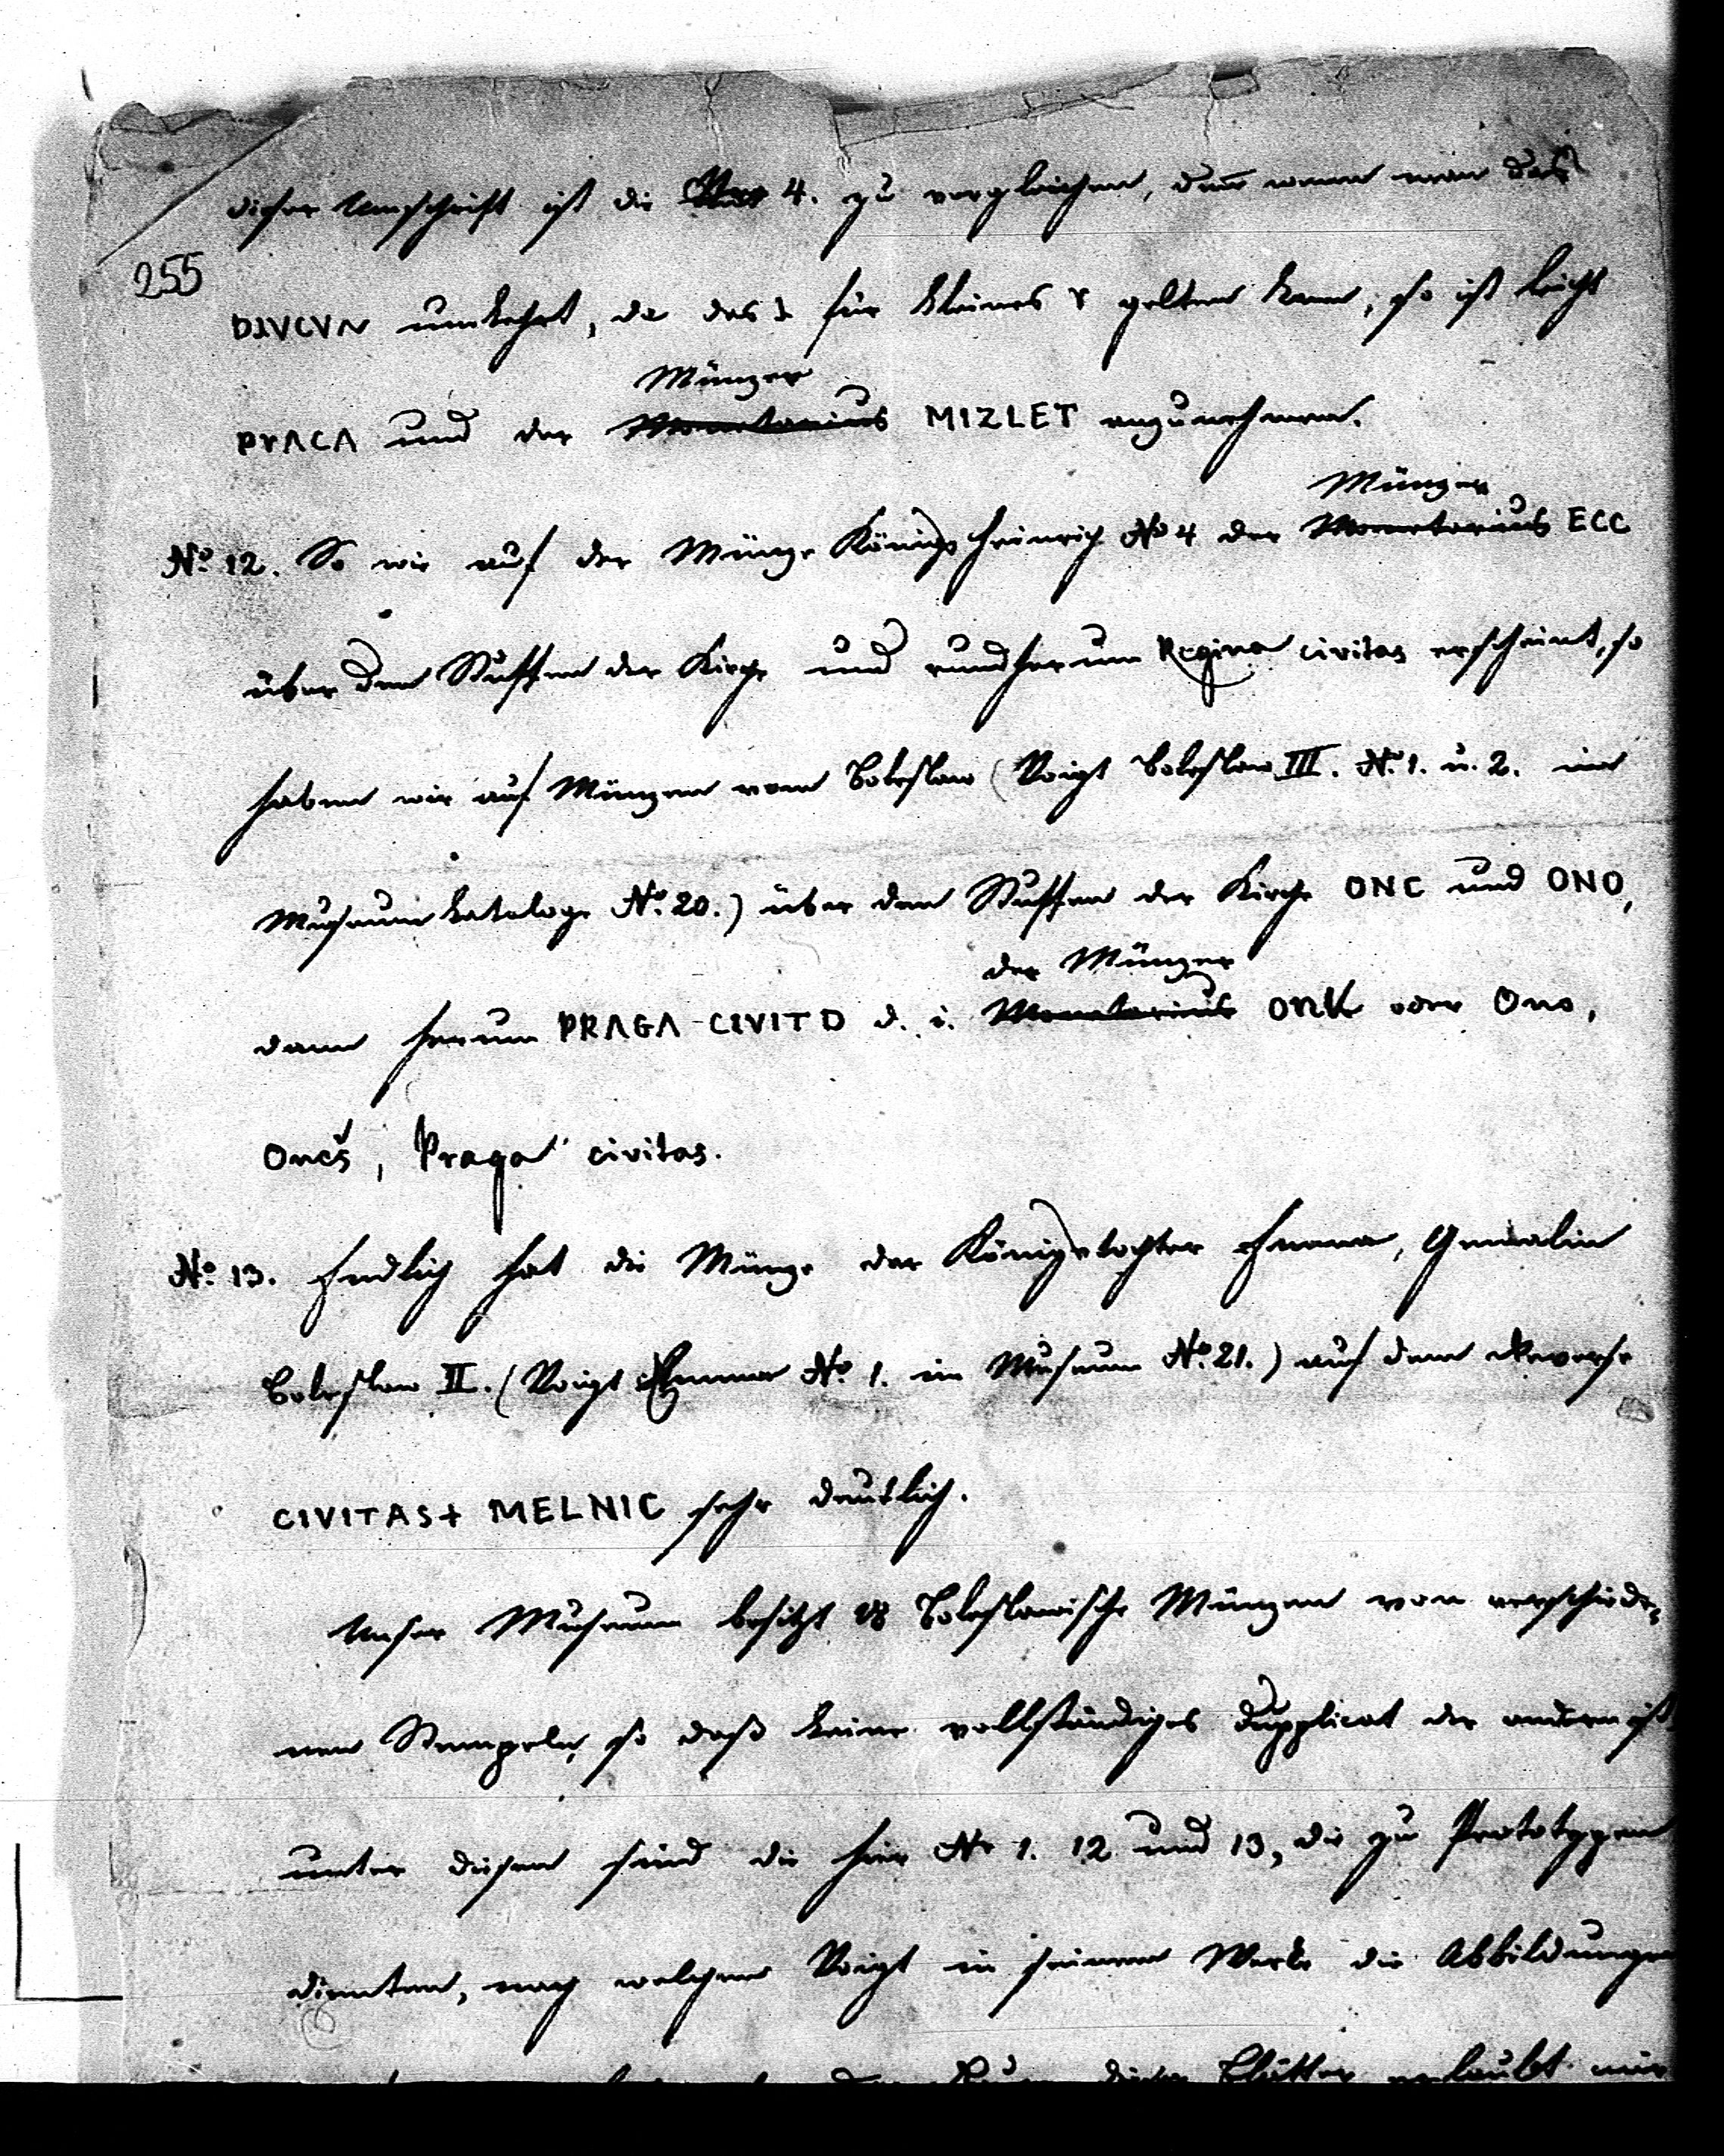 dieser Umschrift ist die Nro 4. zu vergleichen, denn wenn man das
255
DJVCVN umkehrt, da das J für kleines r gelten kann, so ist leicht
Münzer
PrACA und der Monetarius MIZLET anzunehmen.
Münzer
No. 12. So wie auf der Münze Königs Heinrich No 4 der Monetarius ECC
über den Stuffen der Kirche und rundherum Regina civitas erscheint, so
haben wir auf Münzen vom Boleslaw (Voigt Boleslaw III. No. 1. u. 2. im
Museumkataloge No. 20.) über den Stuffen der Kirche ONC und ONO,
der Münzer
dann herum PRAGA CIVITD d. i. Monetarius ONK oder Ono,
Oneš, Praga civitas.
No. 13. Endlich hat die Münze der Königstochter Emma, Gemalin
Boleslaw II. (Voigt Emma No. 1. im Museum No. 21.) auf dem Reverse
CIVITAS+ MELNIC sehr deutlich.
Unser Museum besitzt 18 Boleslawische Münzen von verschiede-
nen Stempeln, so daß keine vollständiges Dupplicat der andern ist.
unter diesen sind die hier No 1. 12 und 13, die zu Prototypen
dienten, nach welchen Voigt in seinem Werke die Abbildungen
Raum dieser Blätter erlaubt mir